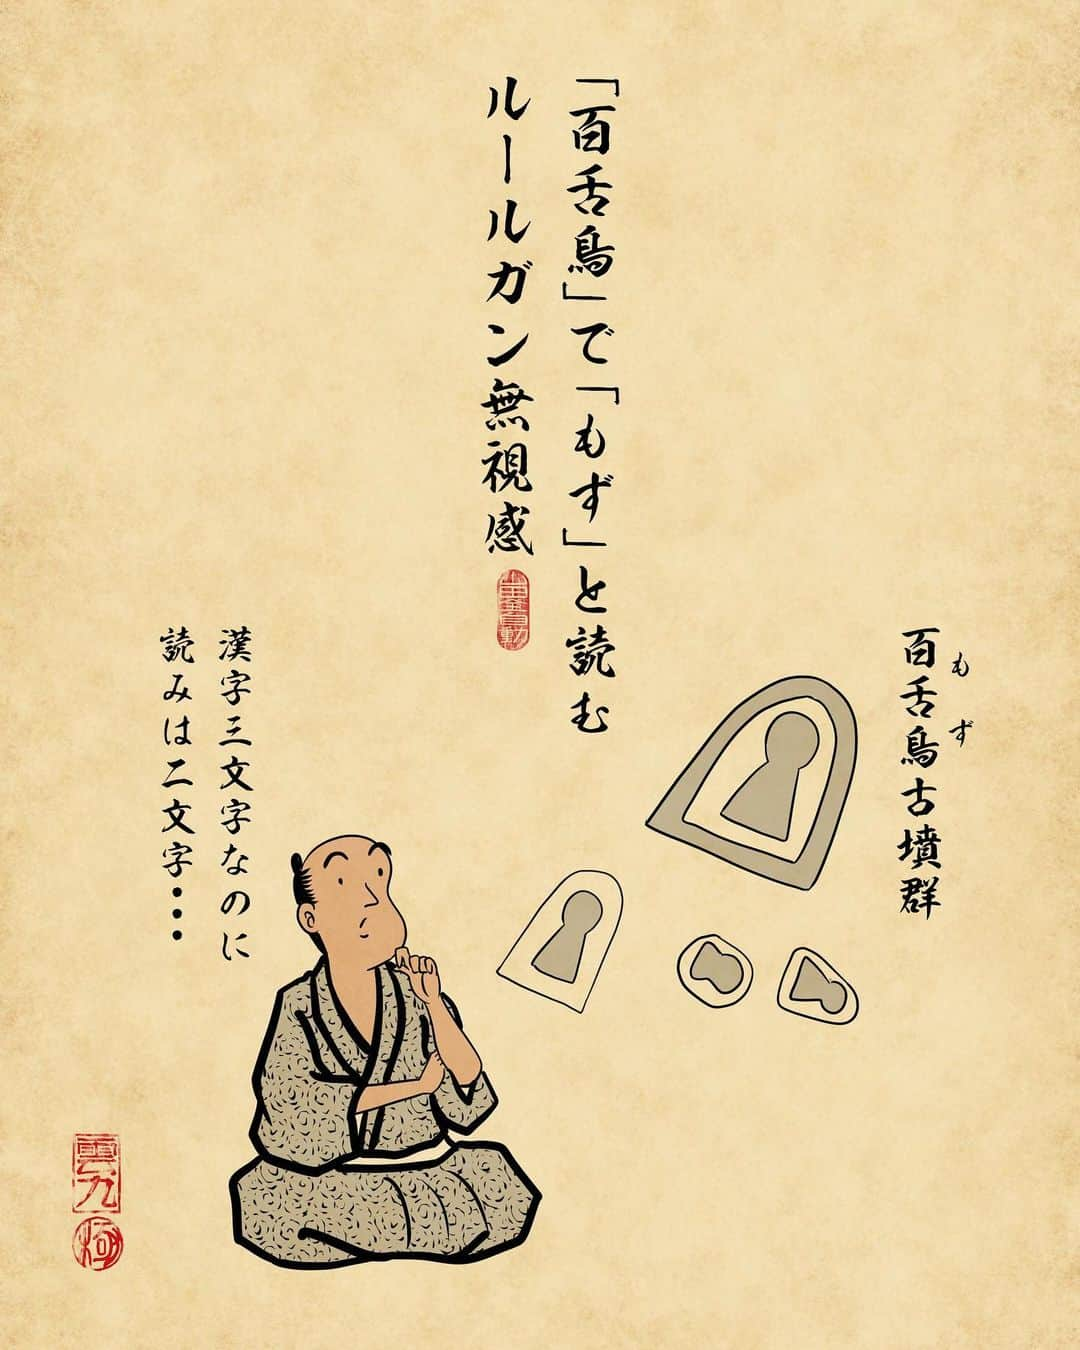 「百舌鳥」で「もず」と読む
ルールガン無視感
百舌鳥古墳群
もず
漢字三文字なのに
読みは二文字・・・